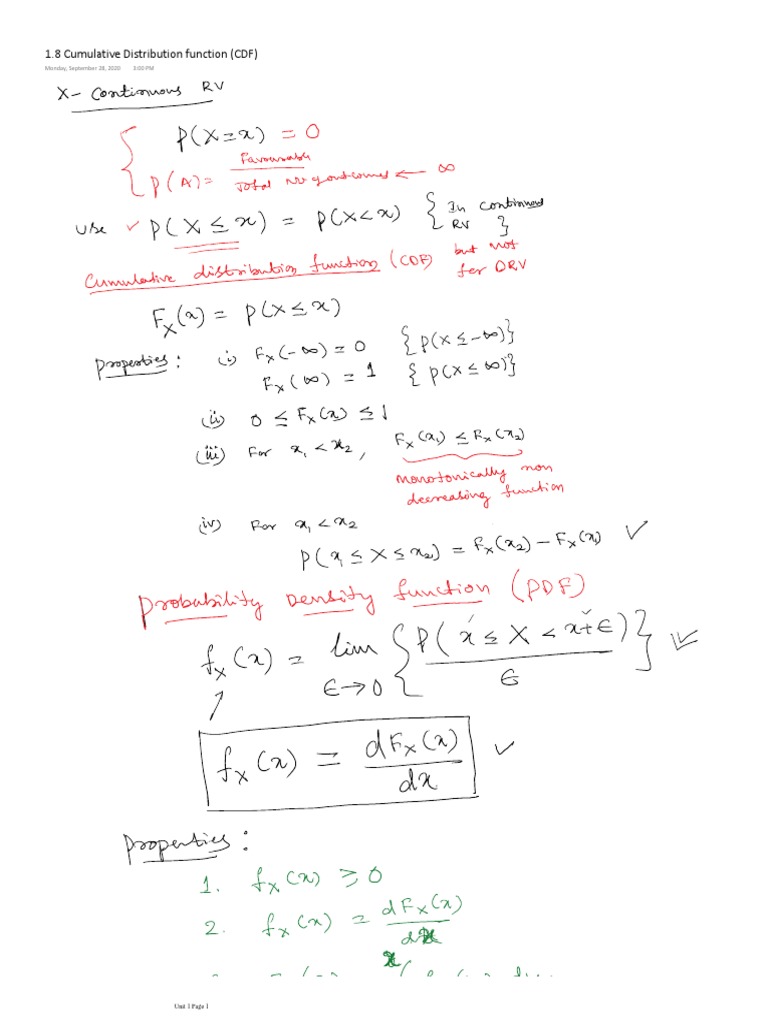 1.8 Cumulative Distribution function (CDF)
Monday, September 28, 2020 3:00 PM
X- Continuous RV
P(X=x) = 0
P(A) = Favourable / Total no of outcomes ← ∞
use ✓ P(X ≤ x) = P(X<x) { In continuous RV }
but not for DRV
Cumulative distribution function (CDF)
F_X(x) = P(X ≤ x)
Properties: (i) F_X(-∞) = 0 {P(X ≤ -∞)}
F_X(∞) = 1 {P(X ≤ ∞)}
(ii) 0 ≤ F_X(x) ≤ 1
(iii) For x₁ < x₂, F_X(x₁) ≤ F_X(x₂)
monotonically non
decreasing function
(iv) For x₁ < x₂
P(x₁ ≤ X ≤ x₂) = F_X(x₂) - F_X(x₁) ✓
Probability Density function (PDF)
f_X(x) = lim ε→0 { P(x ≤ X < x+ε) / ε } ✓
f_X(x) = dF_X(x) / dx ✓
Properties:
1. f_X(x) ≥ 0
2. f_X(x) = dF_X(x) / dx
Unit 1 Page 1